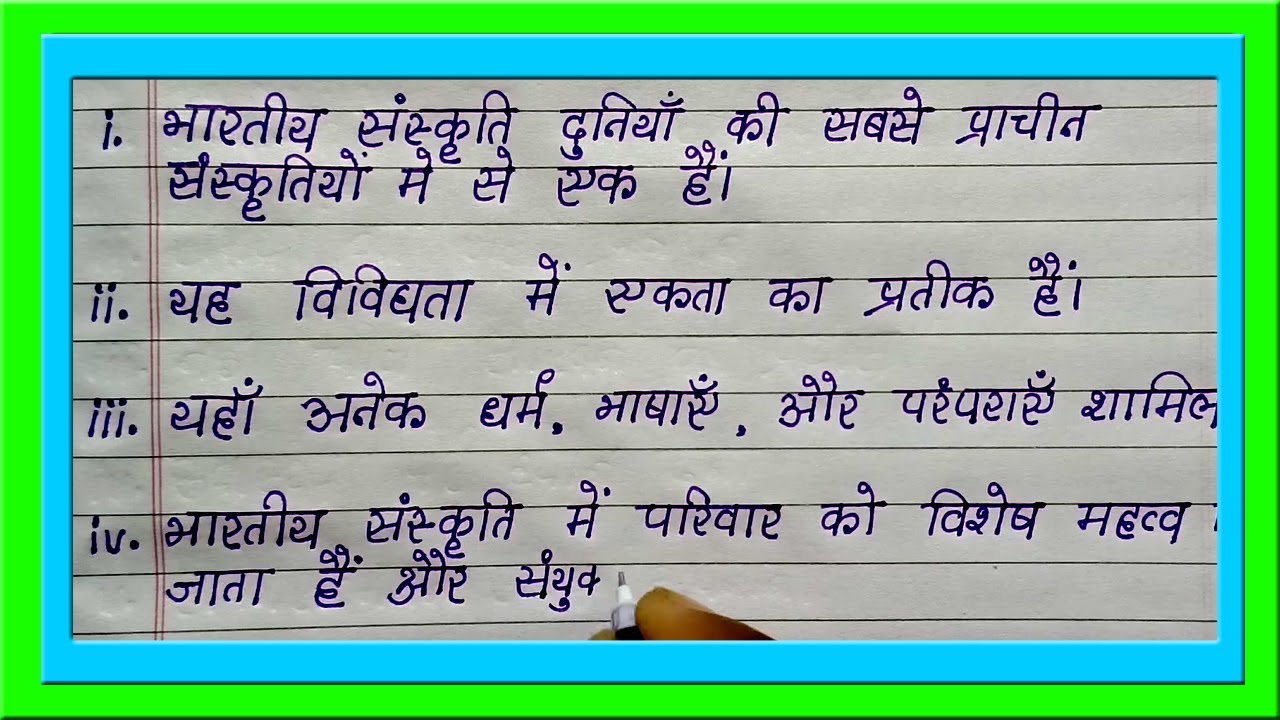 i. भारतीय संस्कृति दुनियाँ की सबसे प्राचीन
संस्कृतियों मे से एक हैं।
ii. यह विविधता में एकता का प्रतीक हैं।
iii. यहाँ अनेक धर्म, भाषाएँ, और परंपराएँ शामिल
iv. भारतीय संस्कृति में परिवार को विशेष महत्व
जाता हैं और